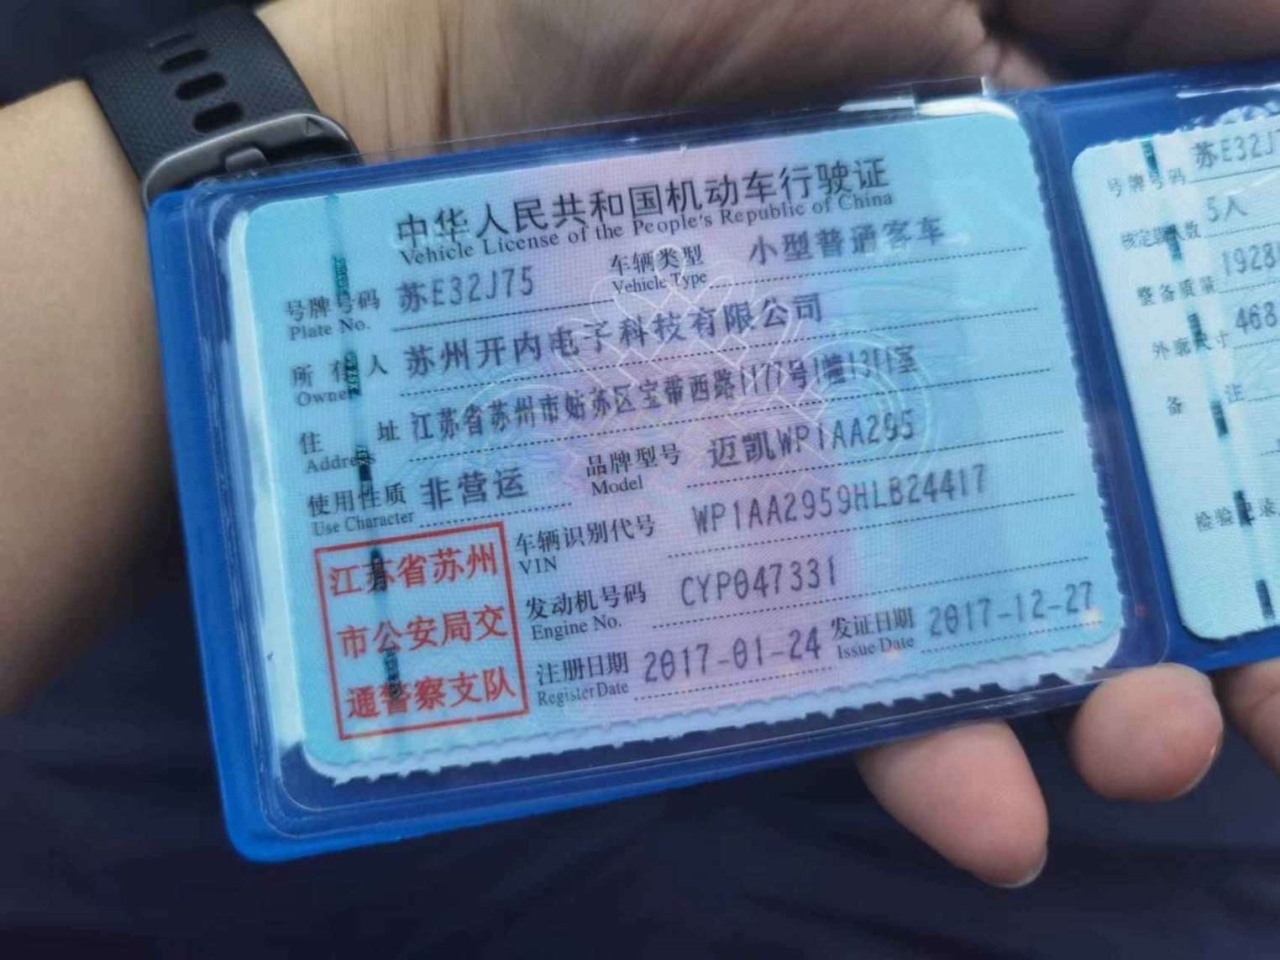 中华人民共和国机动车行驶证
Vehicle License of the People's Republic of China
号牌号码 苏E32J75 车辆类型 小型普通客车
Plate No. Vehicle Type
所有人 苏州开内电子科技有限公司
Owner
住址 江苏省苏州市姑苏区宝带西路1177号1幢1311室
Address
使用性质 非营运 品牌型号 迈凯WP1AA295
Use Character Model
车辆识别代号 WP1AA2959HLB24417
VIN
发动机号码 CYP047331
Engine No.
注册日期 2017-01-24 发证日期 2017-12-27
Register Date Issue Date
江苏省苏州
市公安局交
通警察支队
号牌号码 苏E32J
核定载人数 5人
整备质量 1928
外廓尺寸 468
备注
检验记录